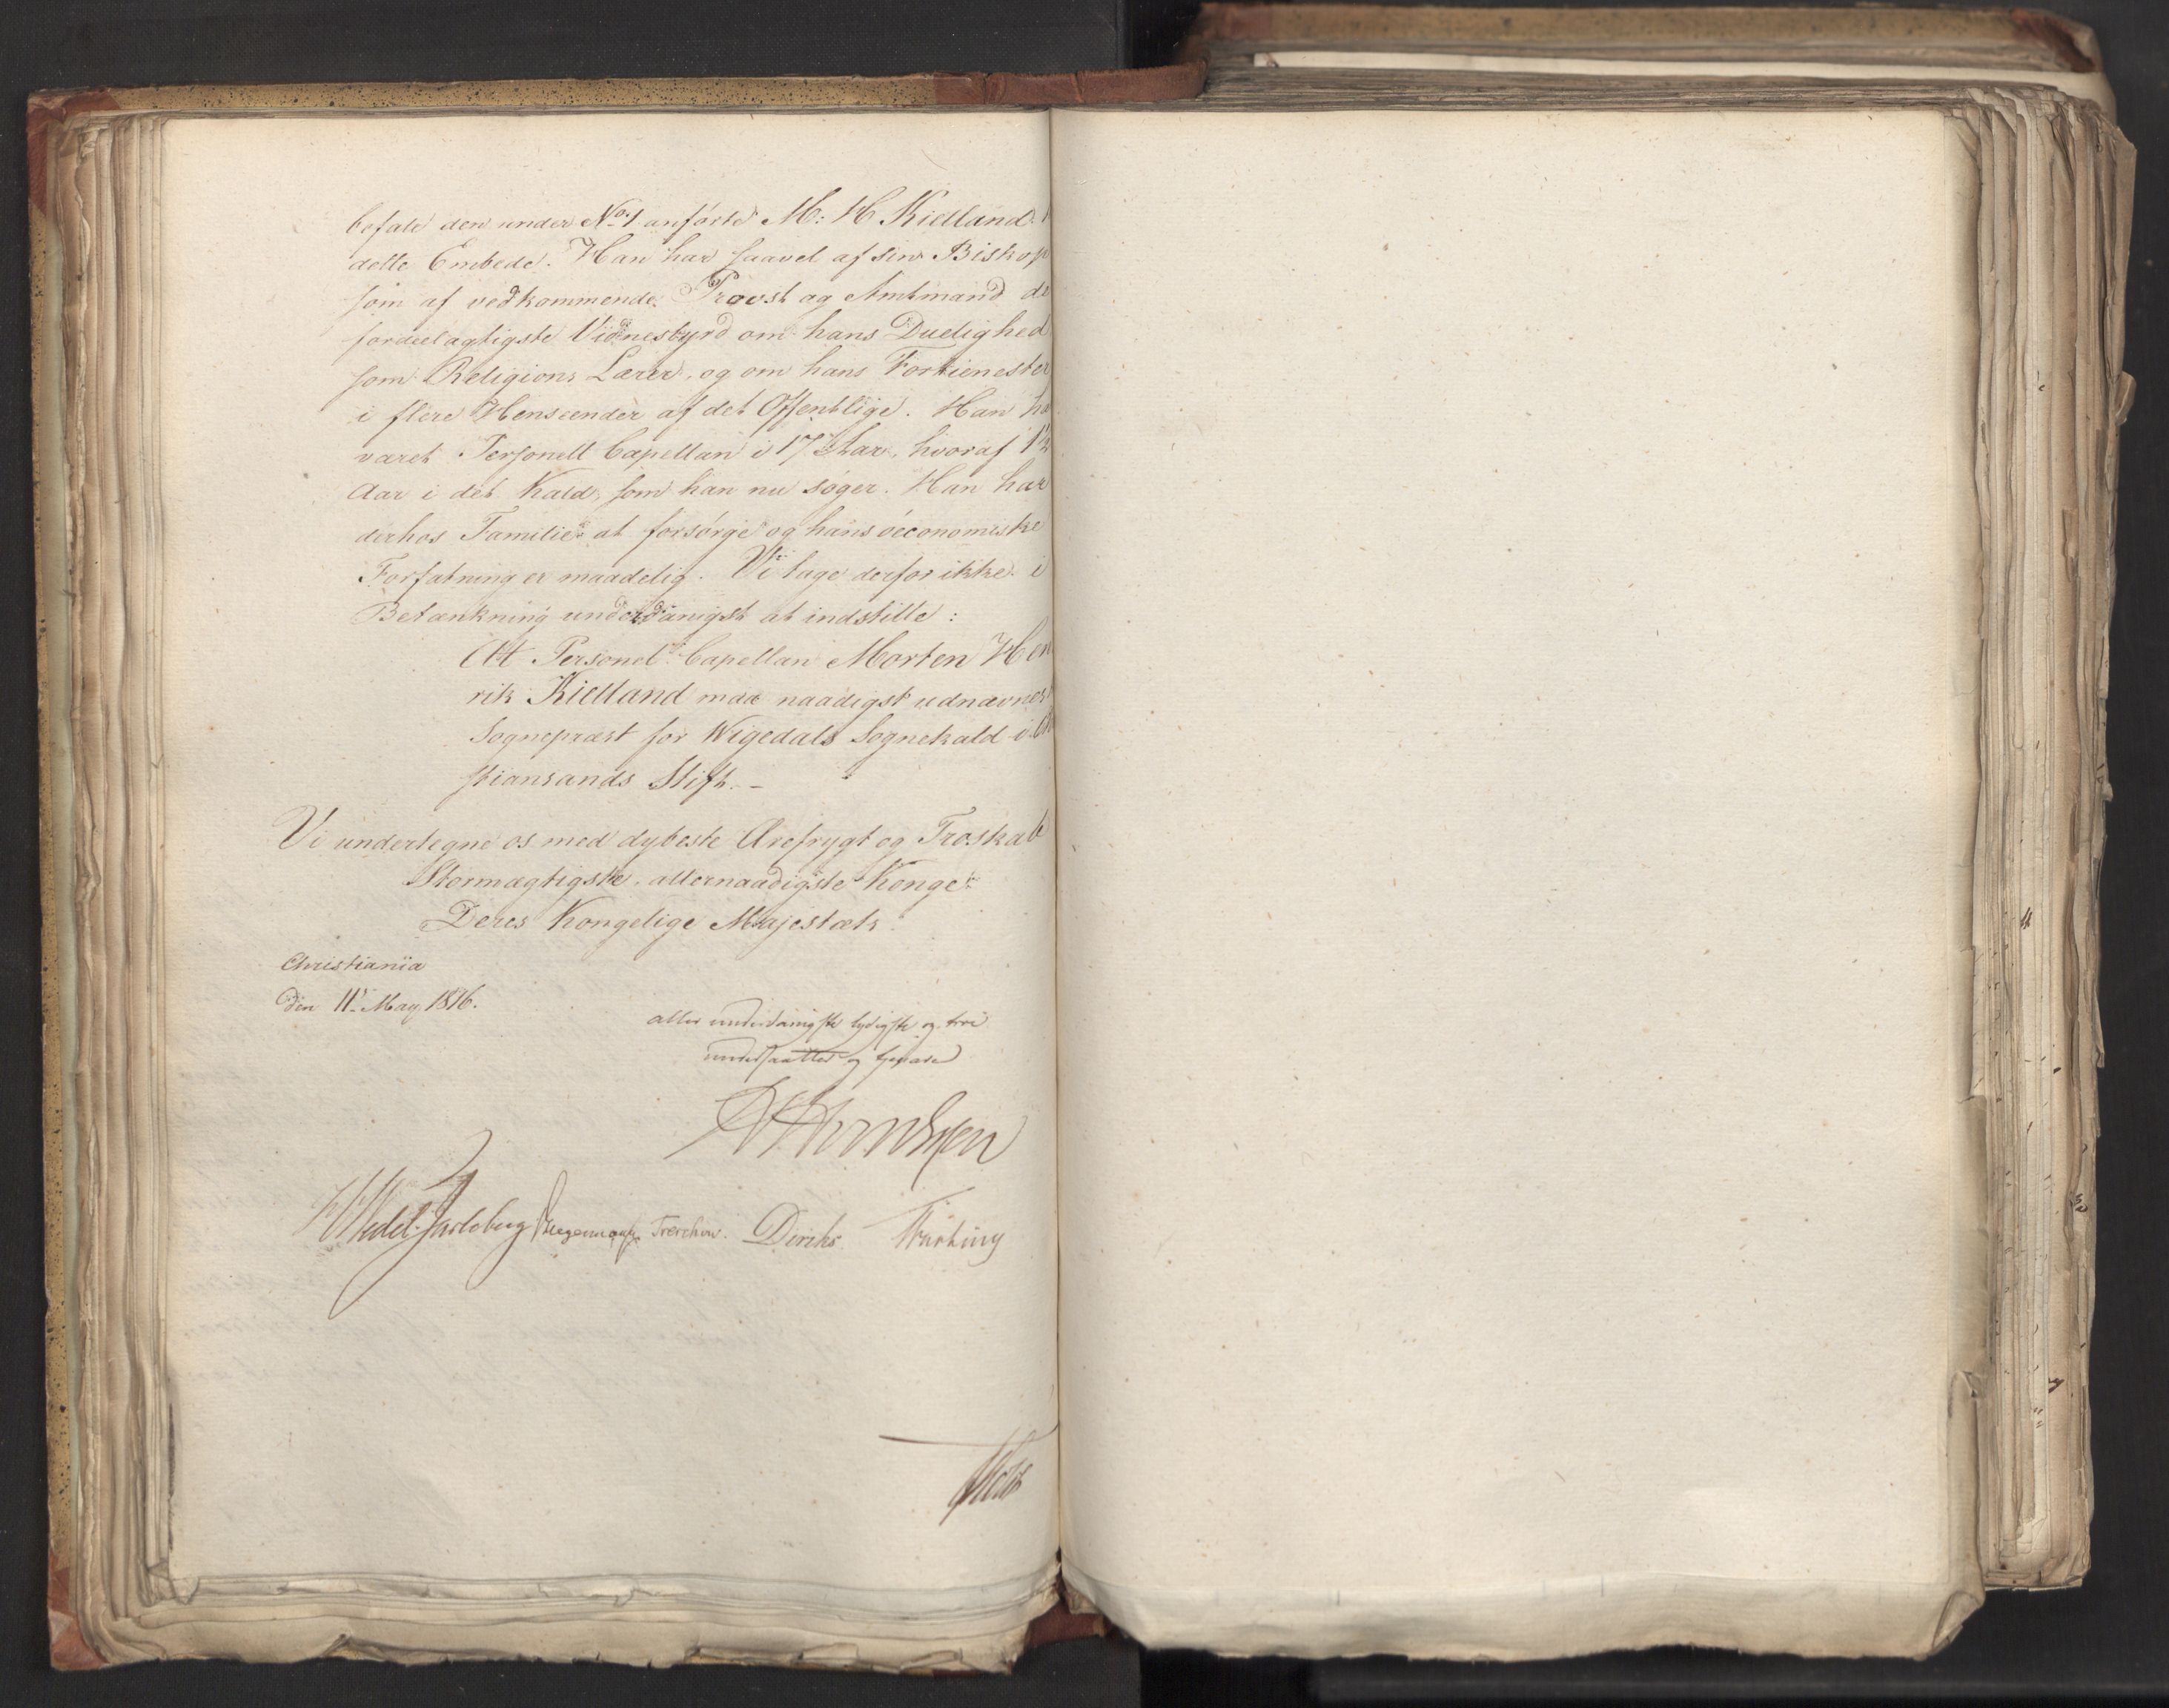 befale den under No. 1 anførte M: H Kielland
dette Embede. Han har saavel af sin Biskop
som af vedkommende Provst og Amtmand de
fordeelagtigste Vidnesbyrd om hans Duelighed
som Religions Lærer, og om hans Fortienester
i flere Henseender af det Offentlige. Han ha
været Personell Capellan i 17 Aar, hvoraf 1½
Aar i det Kald, som han nu søger. Han har
derhos Familie at forsørge og hans oeconomiske
Forfatning er maadelig. Vi tage derfor ikke i
Betænkning underdanigst at indstille:
At Personel Capellan Morten Hen
rik Kielland maa naadigst udnævnes
Sognepræst for Wigedals Sognekald i Ch
stiansands Stift. –
Vi undertegne os med dybeste Ærefrygt og Troskab
Stormægtigste, allernaadigste Konge
Deres Kongelige Majestæts
Christiania
den 11te May 1816.
aller underdanigste lydigste og troe
undersaatter og tjenere
Wedel Jarlsberg Treschow. Diriks